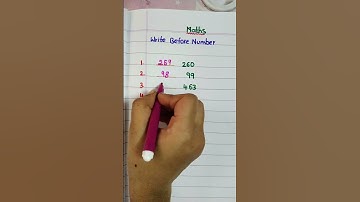 Maths
Write Before Number
1. 259 260
2. 98 99
3. 463